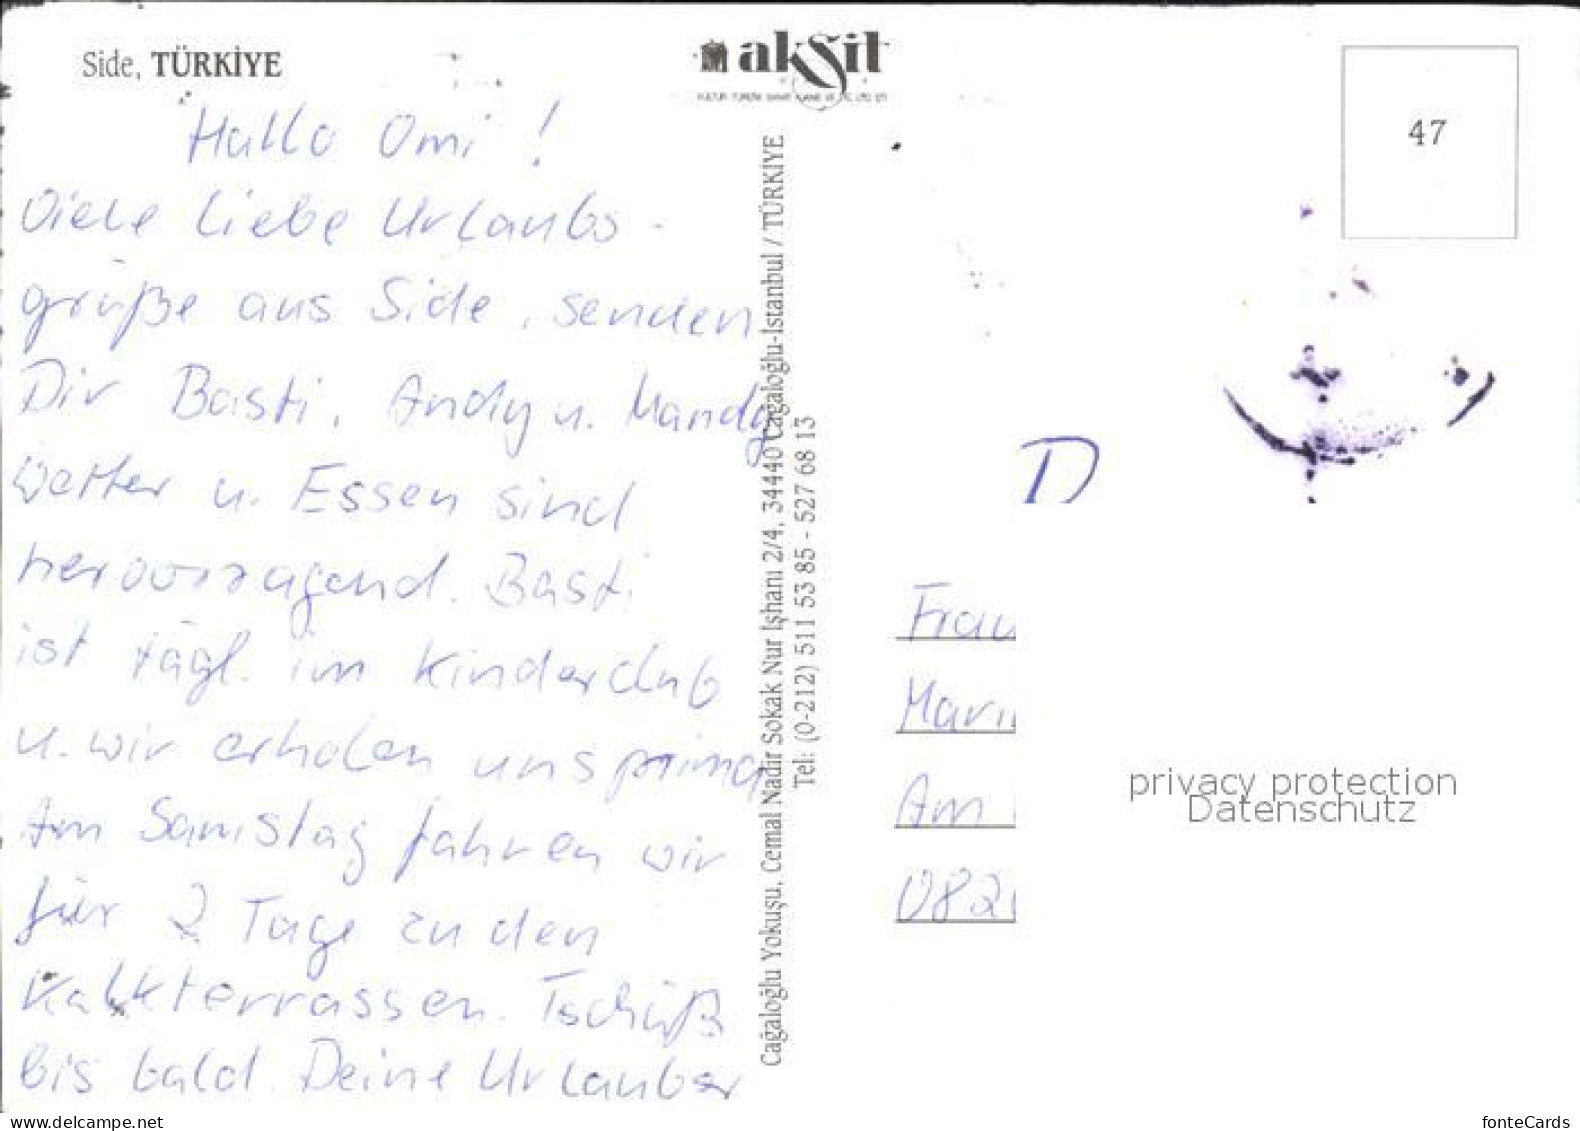 Side, TÜRKİYE
akşit
Hallo Omi!
Viele liebe Urlaubs-
grüße aus Side, senden
Dir Basti, Andy u. Mandy
Wetter u. Essen sind
hervorragend. Basti
ist tägl. im Kinderclub
u. wir erholen uns prima
Am Samstag fahren wir
für 2 Tage zu den
Kalkterrassen. Tschüß
bis bald. Deine Urlauber
Cağaloğlu Yokuşu, Cemal Nadir Sokak Nur İşhanı 2/4, 34440 Cağaloğlu-İstanbul / TÜRKİYE
Tel: (0-212) 511 53 85 - 527 68 13
47
D
Frau
Mari
Am
082
privacy protection
Datenschutz
www.delcampe.net
fonteCards